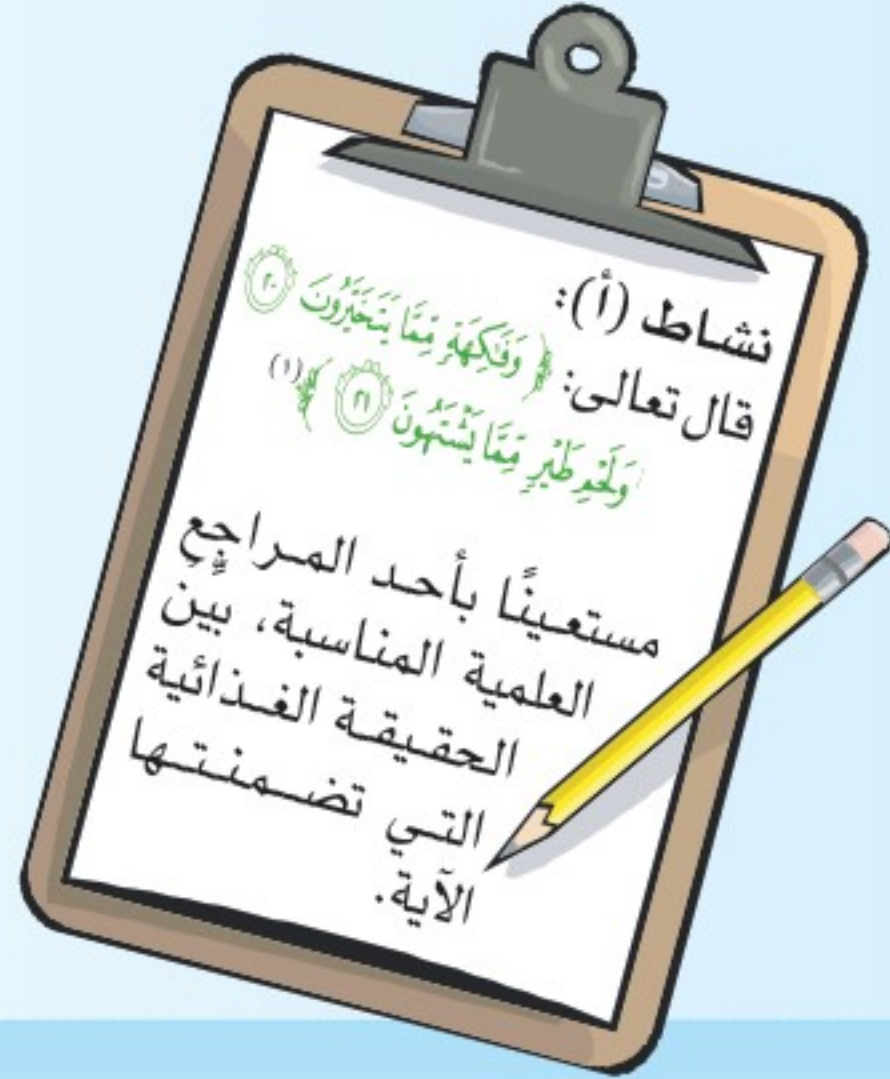 نشاط (أ):
قال تعالى: ﴿ وَفَٰكِهَةٍ مِّمَّا يَتَخَيَّرُونَ ٢٠
وَلَحْمِ طَيْرٍ مِّمَّا يَشْتَهُونَ ٢١ ﴾ (١)
مستعينًا بأحد المراجع
العلمية المناسبة، بين
الحقيقة الغذائية
التي تضمنتها
الآية.